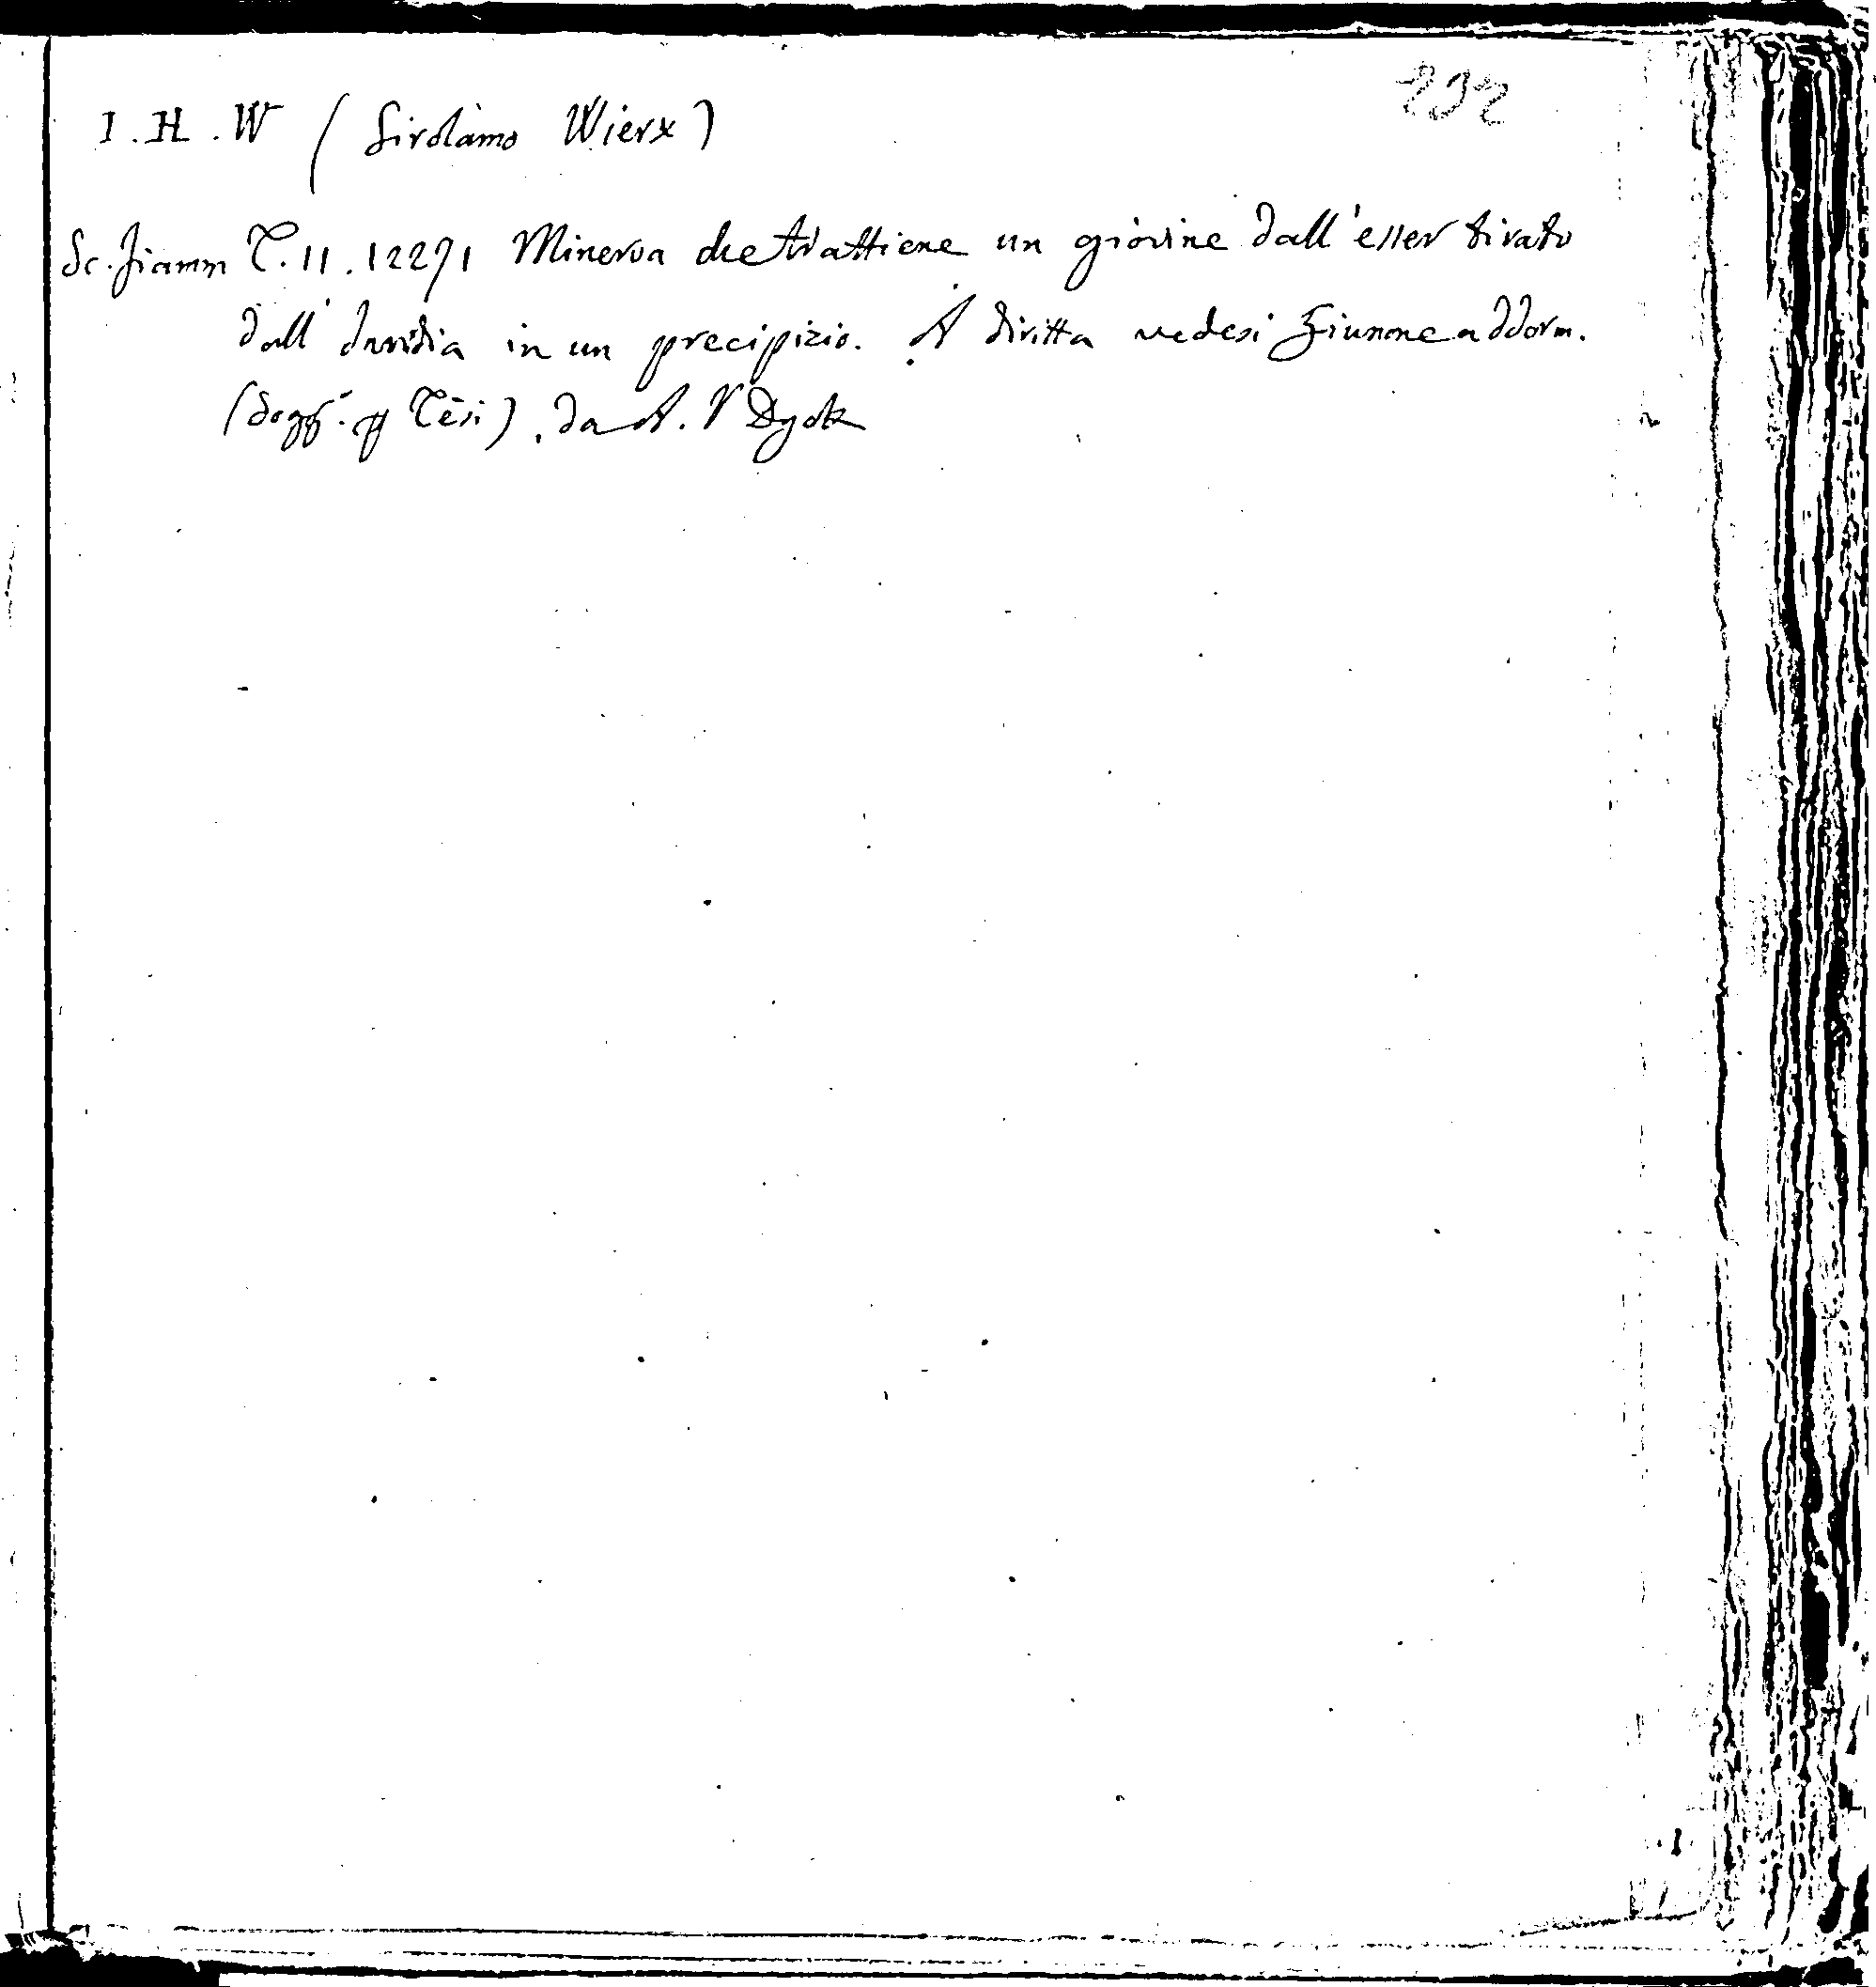 232
I. H. W (Girolamo Wierx)
Sc. Fiamm T. 11. 12291 Minerva che trattiene un giovine dall'esser tirato
dall'Invidia in un precipizio. A diritta vedesi Giunone addorm.
(Sogg. p Tesi). da A. V Dyck